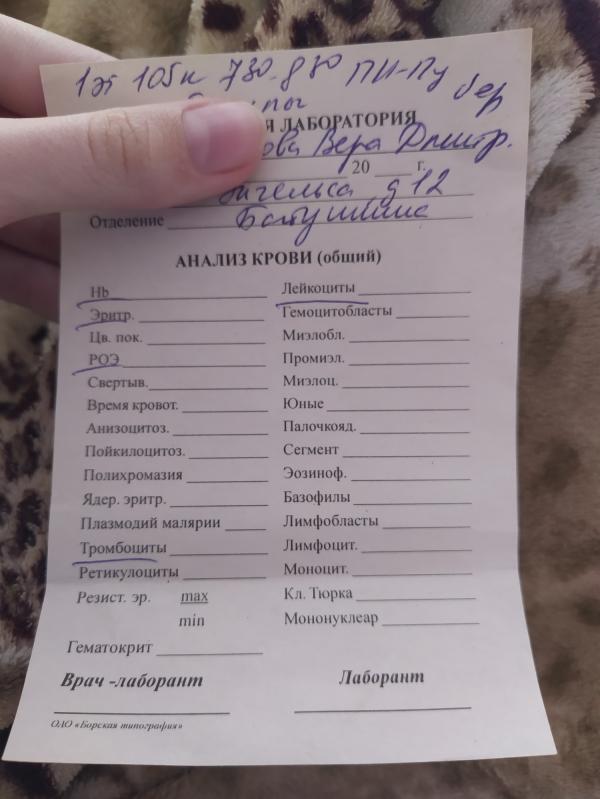 1эт 105к 7³⁰-8³⁰ ПН-Пт
бер
ЛАБОРАТОРИЯ
ова Вера Дмитр.
20 г.
д 12
Отделение
АНАЛИЗ КРОВИ (общий)
Hb Лейкоциты
Эритр. Гемоцитобласты
Цв. пок. Миэлобл.
РОЭ Промиэл.
Свертыв. Миэлоц.
Время кровот. Юные
Анизоцитоз. Палочкояд.
Пойкилоцитоз. Сегмент
Полихромазия Эозиноф.
Ядер. эритр. Базофилы
Плазмодий малярии Лимфобласты
Тромбоциты Лимфоцит.
Ретикулоциты Моноцит.
Резист. эр. max Кл. Тюрка
min Мононуклеар
Гематокрит
Врач -лаборант Лаборант
ОАО «Борская типография»